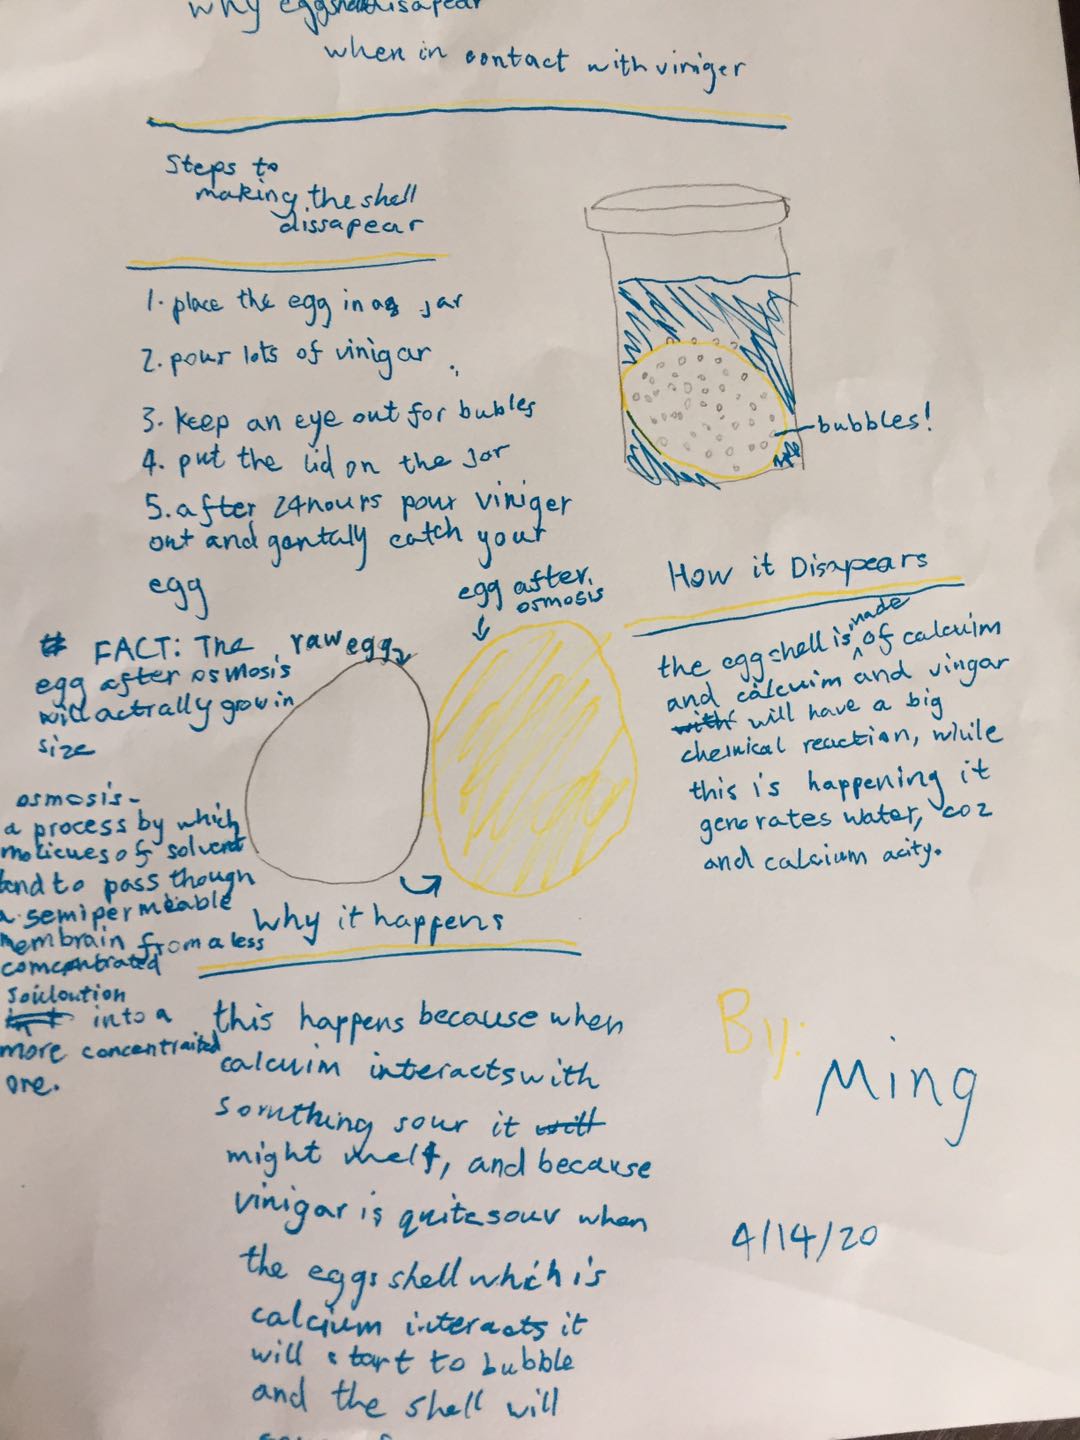 why eggshell disapear
when in contact with viniger
Steps to
making the shell
dissapear
1. place the egg in a jar
2. pour lots of vinigar
3. keep an eye out for bubles
4. put the lid on the jar
5. after 24hours pour viniger
out and gentally catch your
egg
bubbles!
egg after
osmosis
raw egg
# FACT: The
egg after osmosis
will actrally grow in
size
osmosis-
a process by which
molicues of solvent
tend to pass though
a semipermeable
membrain from a less
comcentrated
soicloution
into a
more concentraited
one.
How it Disapears
the eggshell is made of calcuim
and calcuim and vingar
with will have a big
chemical reaction, while
this is happening it
genorates water, co2
and calcium acity.
Why it happens
this happens because when
calcuim interacts with
somthing sour it will
might melt, and because
vinigar is quite sour when
the eggs shell which is
calcium interacts it
will start to bubble
and the shell will
By:
Ming
4/14/20